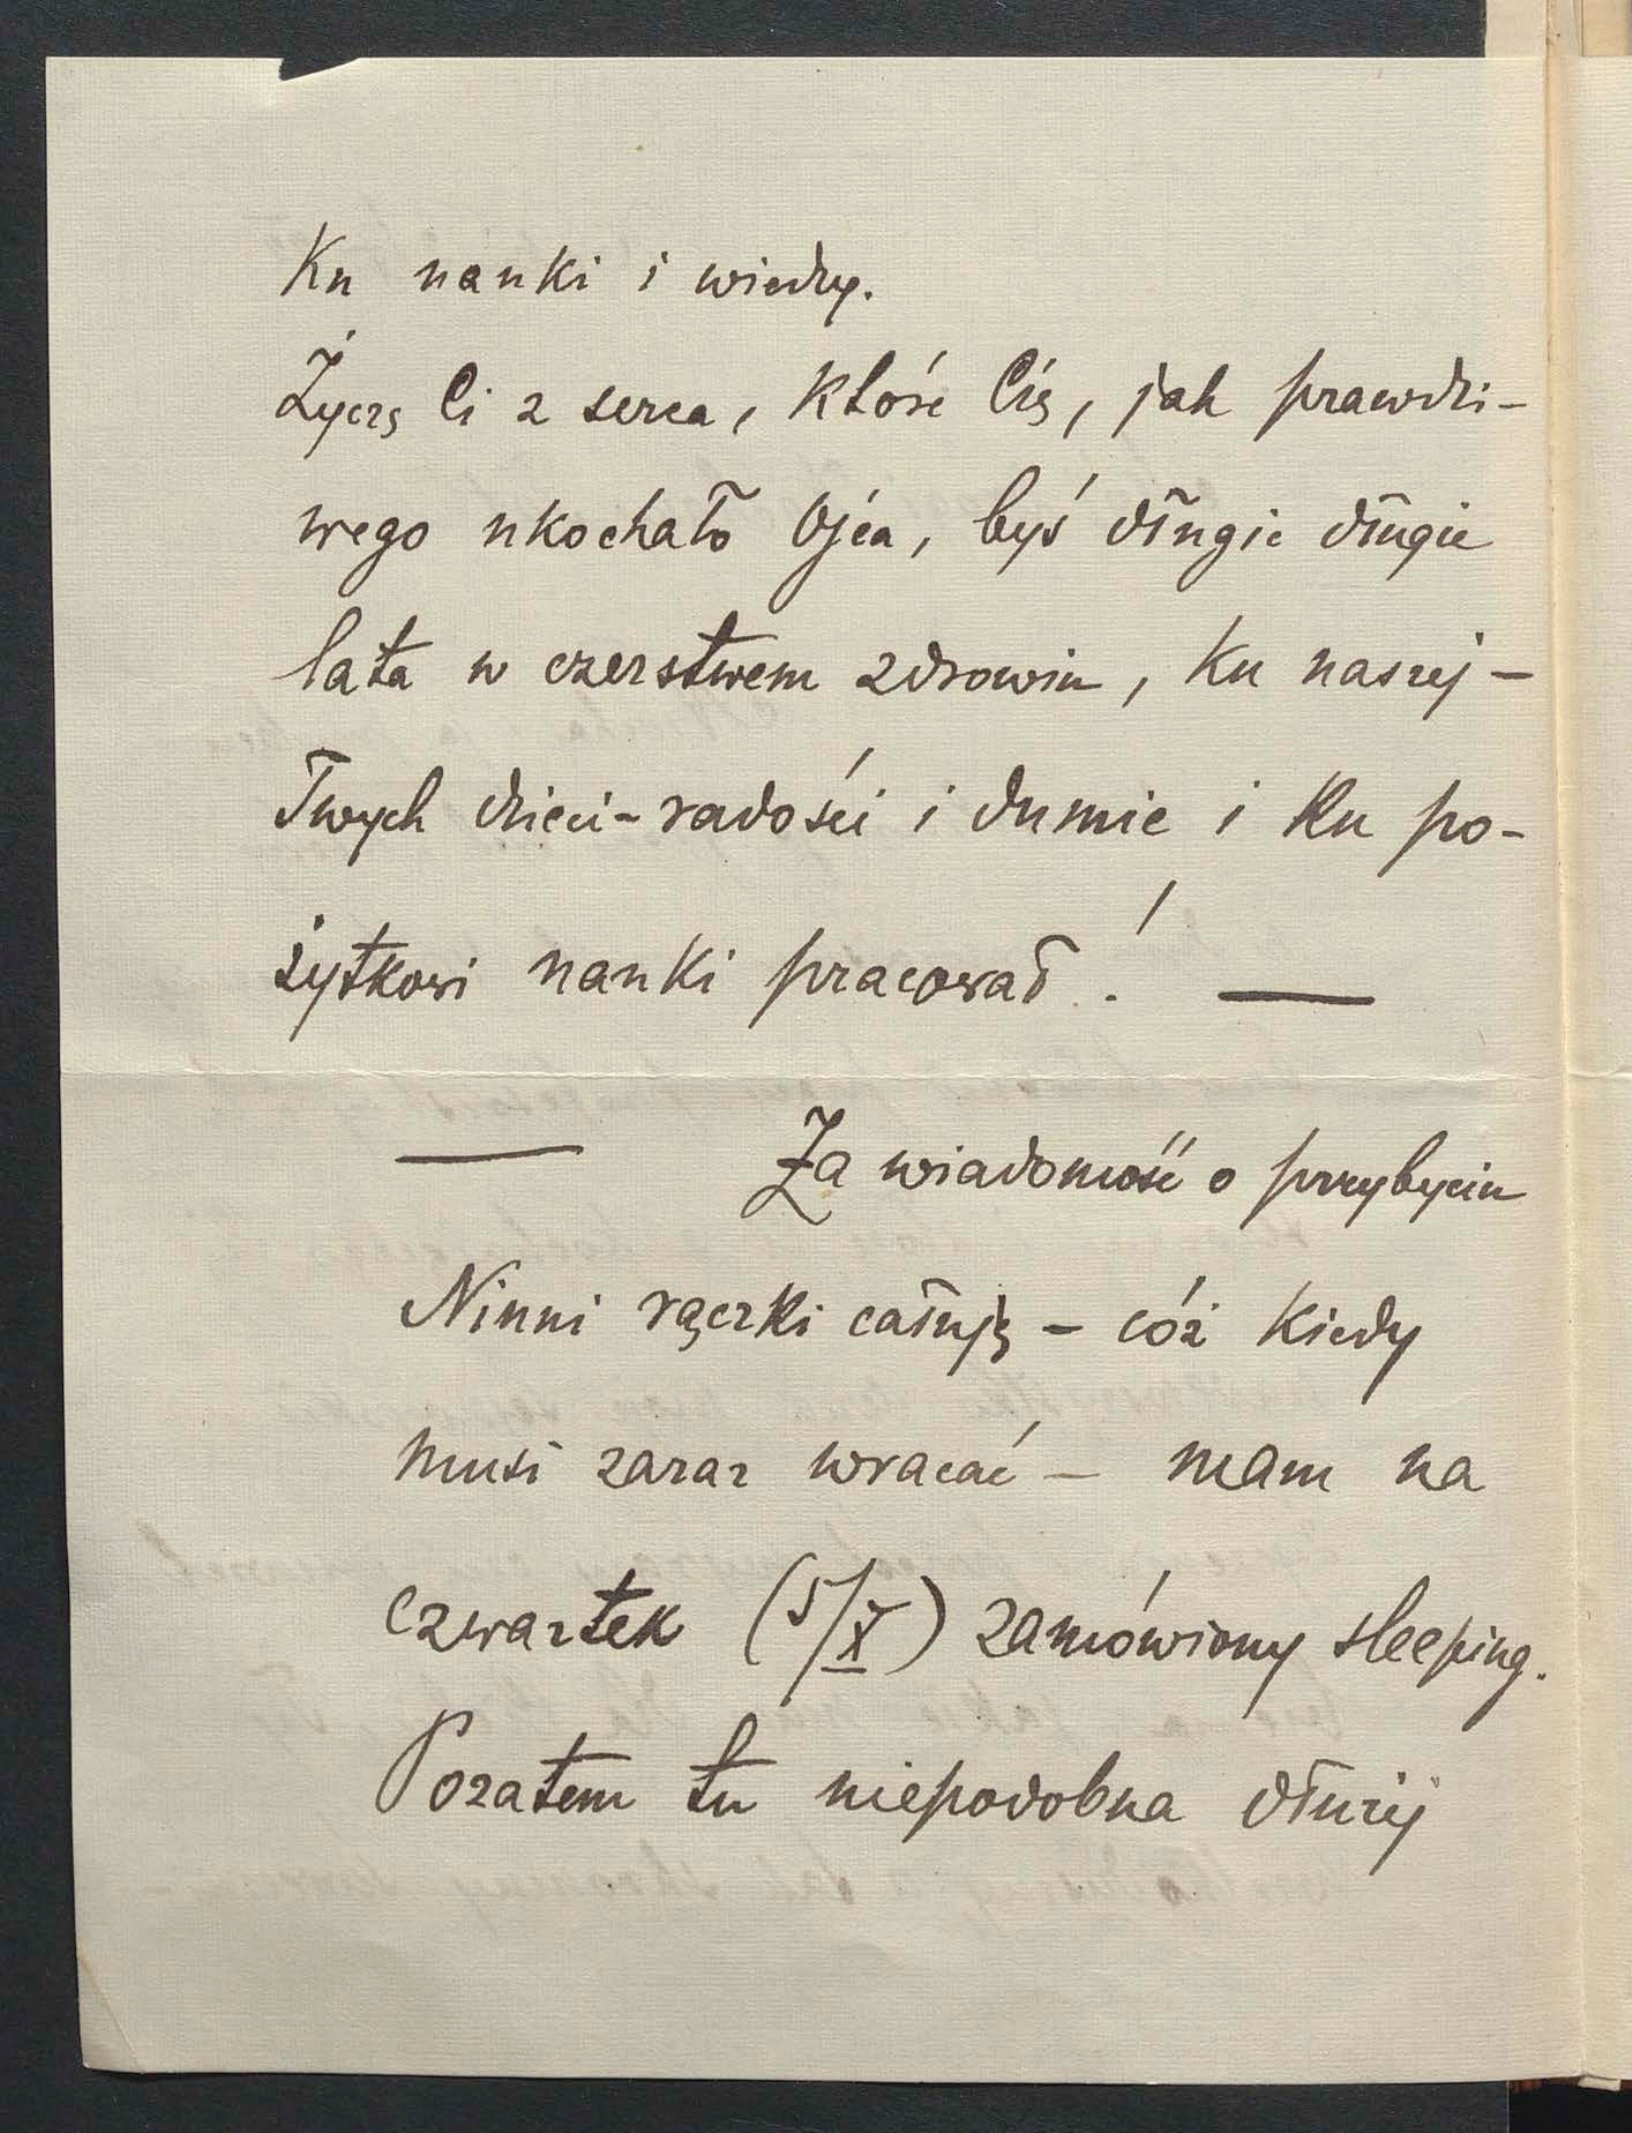 Ku nauki i wiedzy.
Życzę Ci z serca, które Cię, jak prawdzi-
wego ukochało Ojca, byś długie długie
lata w czerstwem zdrowiu, ku naszej -
Twych dzieci - radości i dumie i ku po-
żytkowi nauki pracował! —
— Za wiadomość o przybyciu
Ninni rączki całuję - cóż kiedy
musi zaraz wracać - mam na
czwartek (5/X) zamówiony sleeping.
Pozatem tu niepodobna dłużej